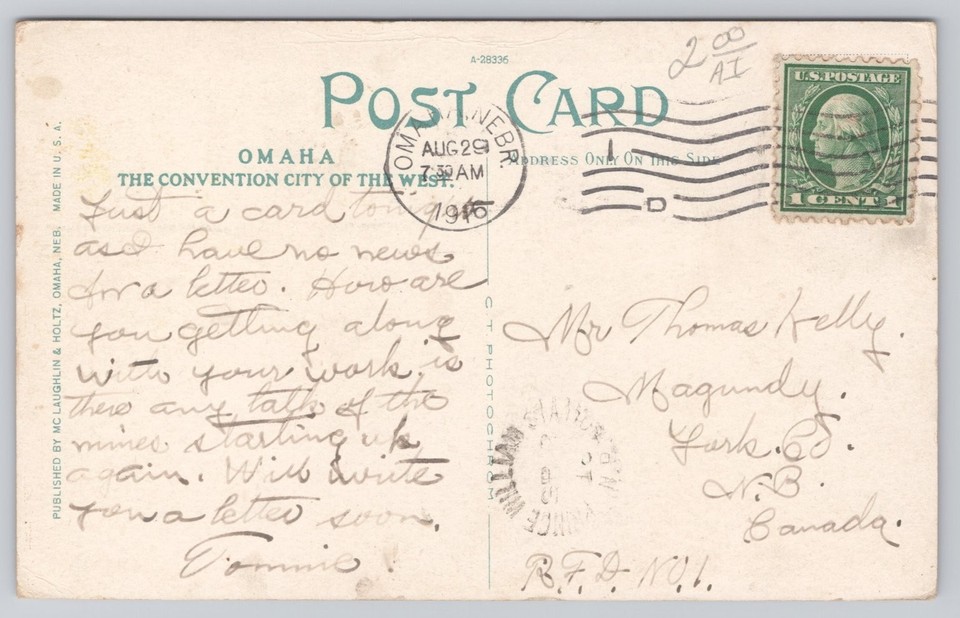 A-28336
2 00/AI
POST CARD
U.S. POSTAGE
1 CENT 1
OMAHA, NEBR.
AUG 29
7 30 AM
1916
D
ADDRESS ONLY ON THIS SIDE
OMAHA
THE CONVENTION CITY OF THE WEST.
PUBLISHED BY MC LAUGHLIN & HOLTZ, OMAHA, NEB. MADE IN U. S. A.
C T PHOTOCHROM
Just a card tonight
as I have no news
for a letter. How are
you getting along
with your work. is
there any talk of the
mines starting up
again. Will write
you a letter soon.
Tommie
Mr Thomas Kelly.
Magundy.
York. Co.
N.B.
Canada.
R.F.D. NO1.
PRINCE WILLIAM STATION N.B.